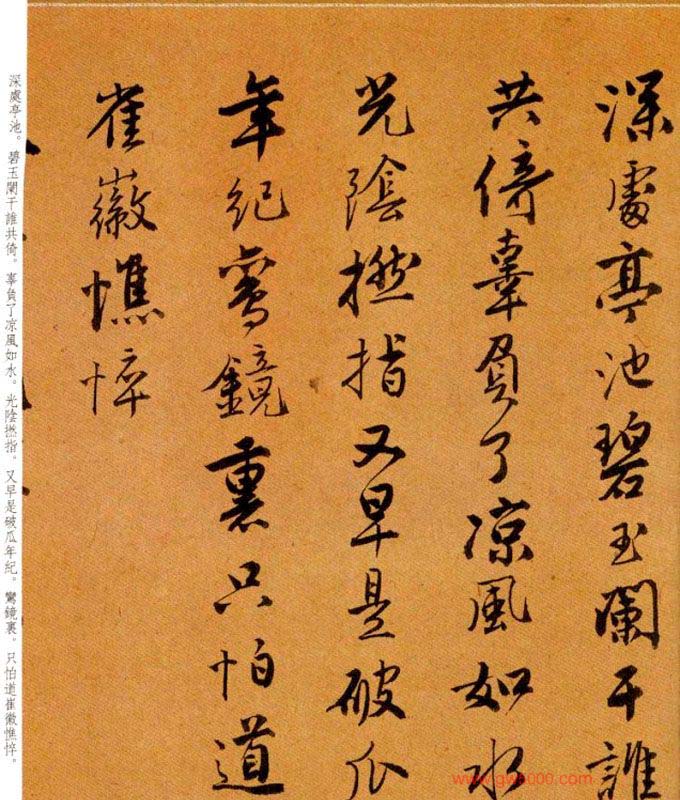 深處亭池碧玉闌干誰
共倚辜負了凉風如水
光陰撚指又早是破瓜
年紀鸞鏡裏只怕道
崔徽憔悴
深處亭池。碧玉闌干誰共倚。辜負了凉風如水。光陰撚指。又早是破瓜年紀。鸞鏡裏。只怕道崔徽憔悴。
www.gw8000.com